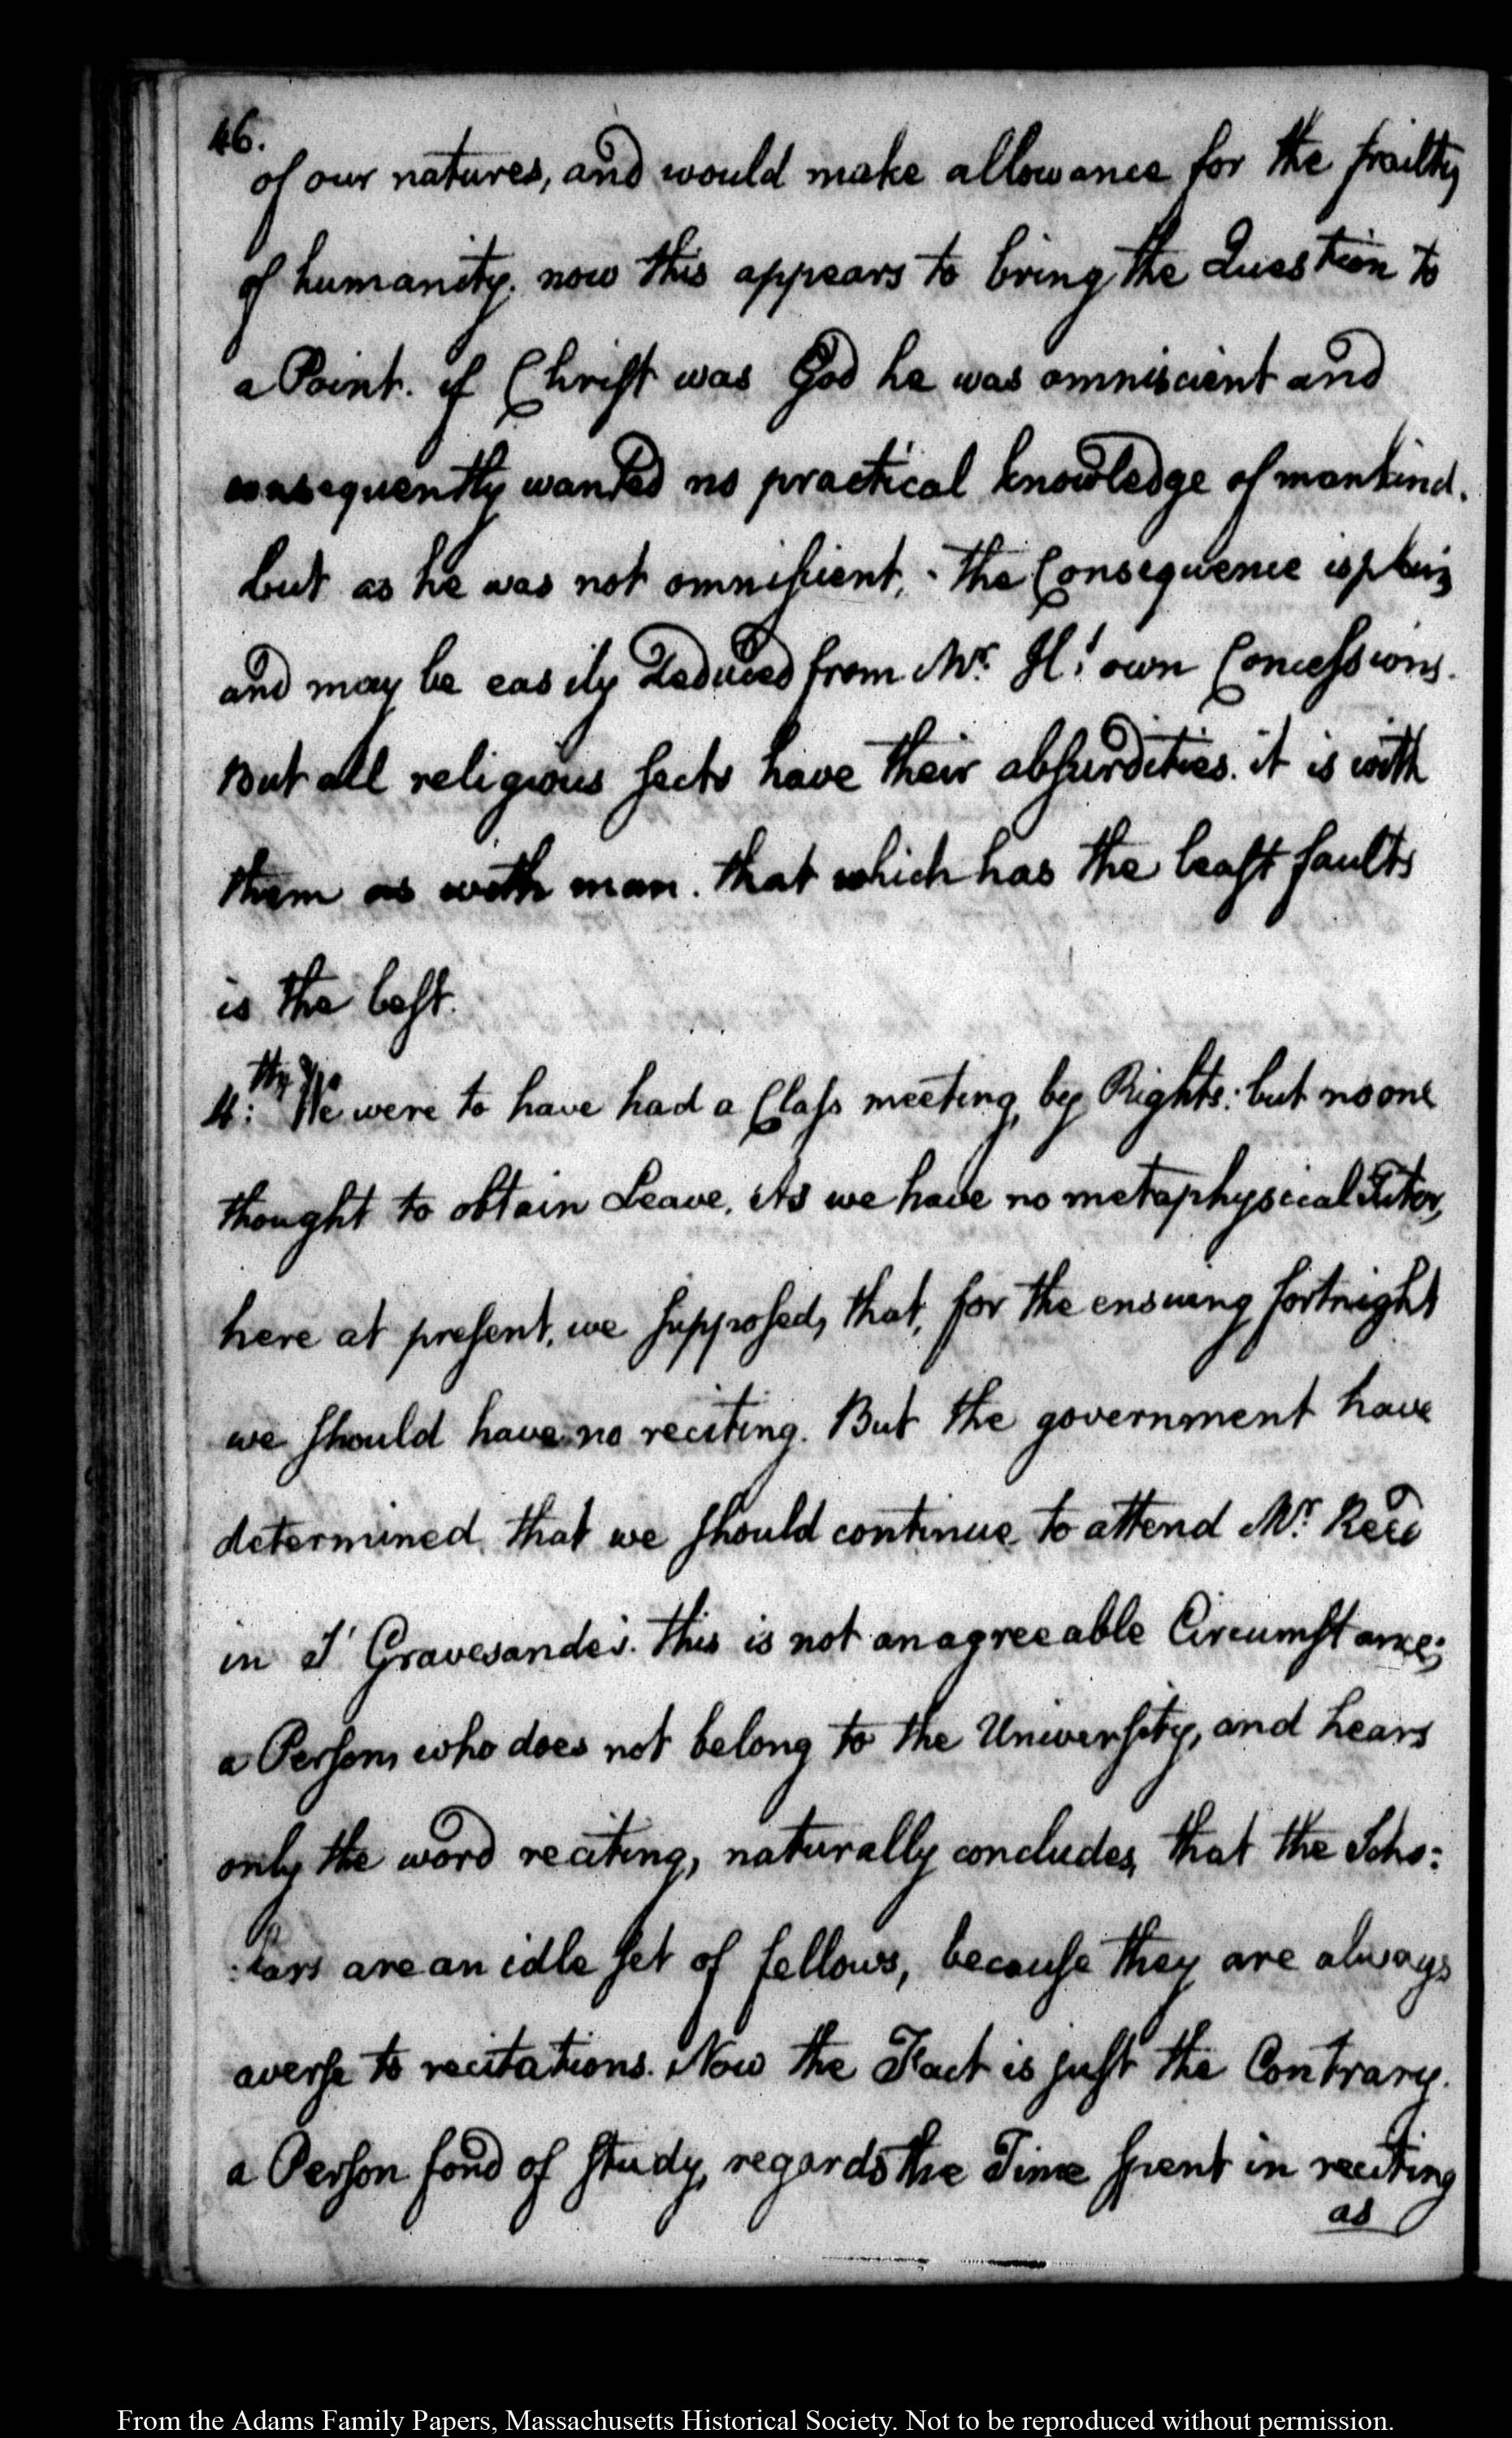 46.
of our natures, and would make allowance for the frailty
of humanity. now this appears to bring the Question to
a Point. if Christ was God he was omniscient and
consequently wanted no practical knowledge of mankind.
but as he was not omniscient, - the Consequence is plain
and may be easily deduced from Mr. H's own Concessions.
But all religious sects have their absurdities. it is with
them as with man. that which has the least faults
is the best.
4:thy. We were to have had a Class meeting, by Rights: but no one
thought to obtain Leave. As we have no metaphysical Tutor,
here at present, we supposed, that, for the ensuing fortnight
we should have no reciting. But the government have
determined, that we should continue to attend Mr. Read
in s' Gravesande's. this is not an agreeable Circumstance;
a Person, who does not belong to the University, and hears
only the word reciting, naturally concludes, that the Scho:
:lars are an idle set of fellows, because they are always
averse to recitations. Now the Fact is just the Contrary.
a Person fond of study, regards the Time spent in reciting
as
From the Adams Family Papers, Massachusetts Historical Society. Not to be reproduced without permission.